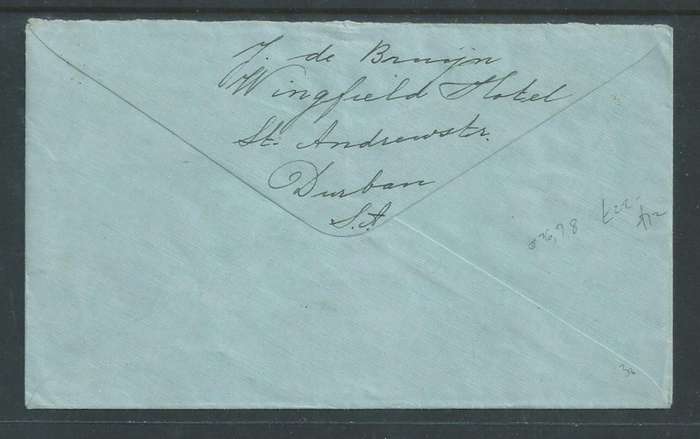 J. de Bruijn
Wingfield Hotel
St. Andrewstr.
Durban
S.A
36